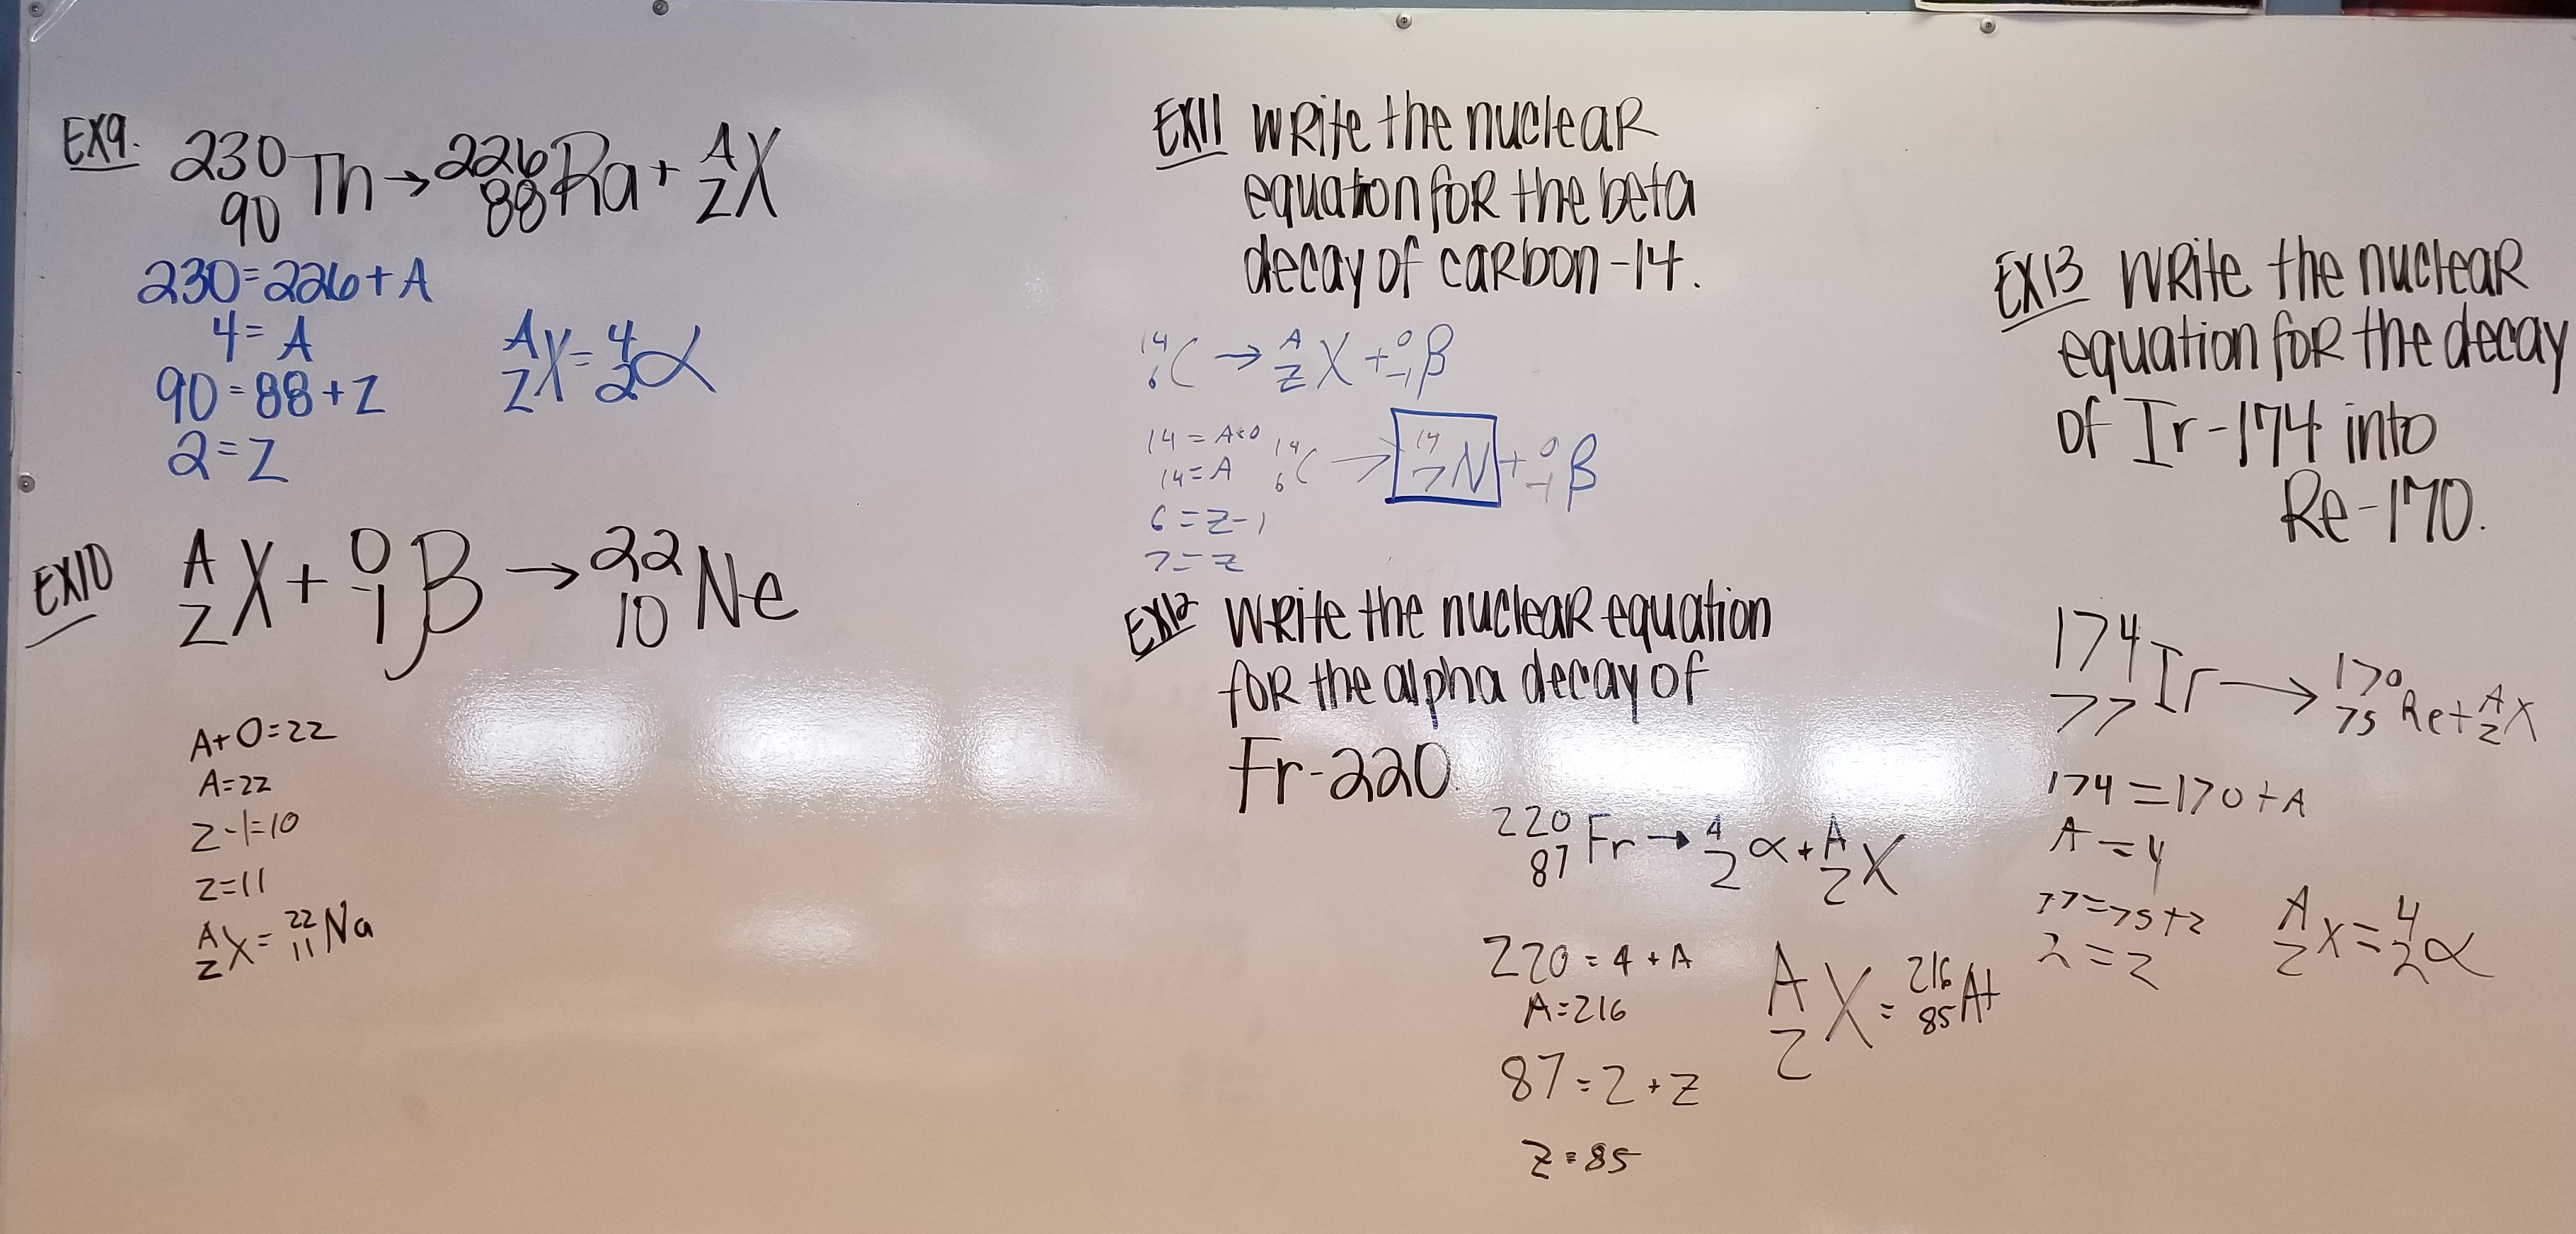 EX9. ²³⁰₉₀Th → ²²⁶₈₈Ra + ᴬ_ZX
230=226+A
4=A
90=88+Z
2=Z
ᴬ_ZX=⁴₂α
EX10 ᴬ_ZX + ⁰₋₁β → ²²₁₀Ne
A+0=22
A=22
Z-1=10
Z=11
ᴬ_ZX=²²₁₁Na
EX11 Write the nuclear
equation for the beta
decay of carbon-14.
¹⁴₆C → ᴬ_ZX + ⁰₋₁β
14=A+0
14=A
6=Z-1
7=Z
¹⁴₆C → ¹⁴₇N + ⁰₋₁β
EX12 Write the nuclear equation
for the alpha decay of
Fr-220.
²²⁰₈₇Fr → ⁴₂α + ᴬ_ZX
220=4+A
A=216
87=2+Z
Z=85
ᴬ_ZX=²¹⁶₈₅At
EX13 Write the nuclear
equation for the decay
of Ir-174 into
Re-170.
¹⁷⁴₇₇Ir → ¹⁷⁰₇₅Re + ᴬ_ZX
174=170+A
A=4
77=75+Z
2=Z
ᴬ_ZX=⁴₂α